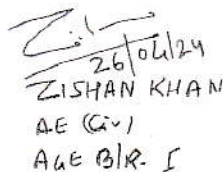 26/04/24
ZISHAN KHAN
AE (Civ)
AGE B/R-I